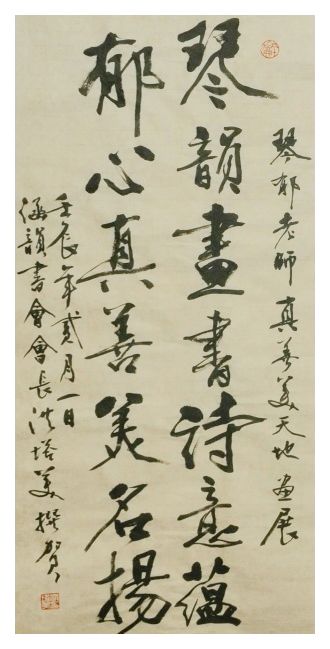 琴郁老師真善美天地画展
琴韻畫書詩意蘊
郁心真善美名揚
壬辰年貳月一日
涵韻書會會長洪塔美撰賀